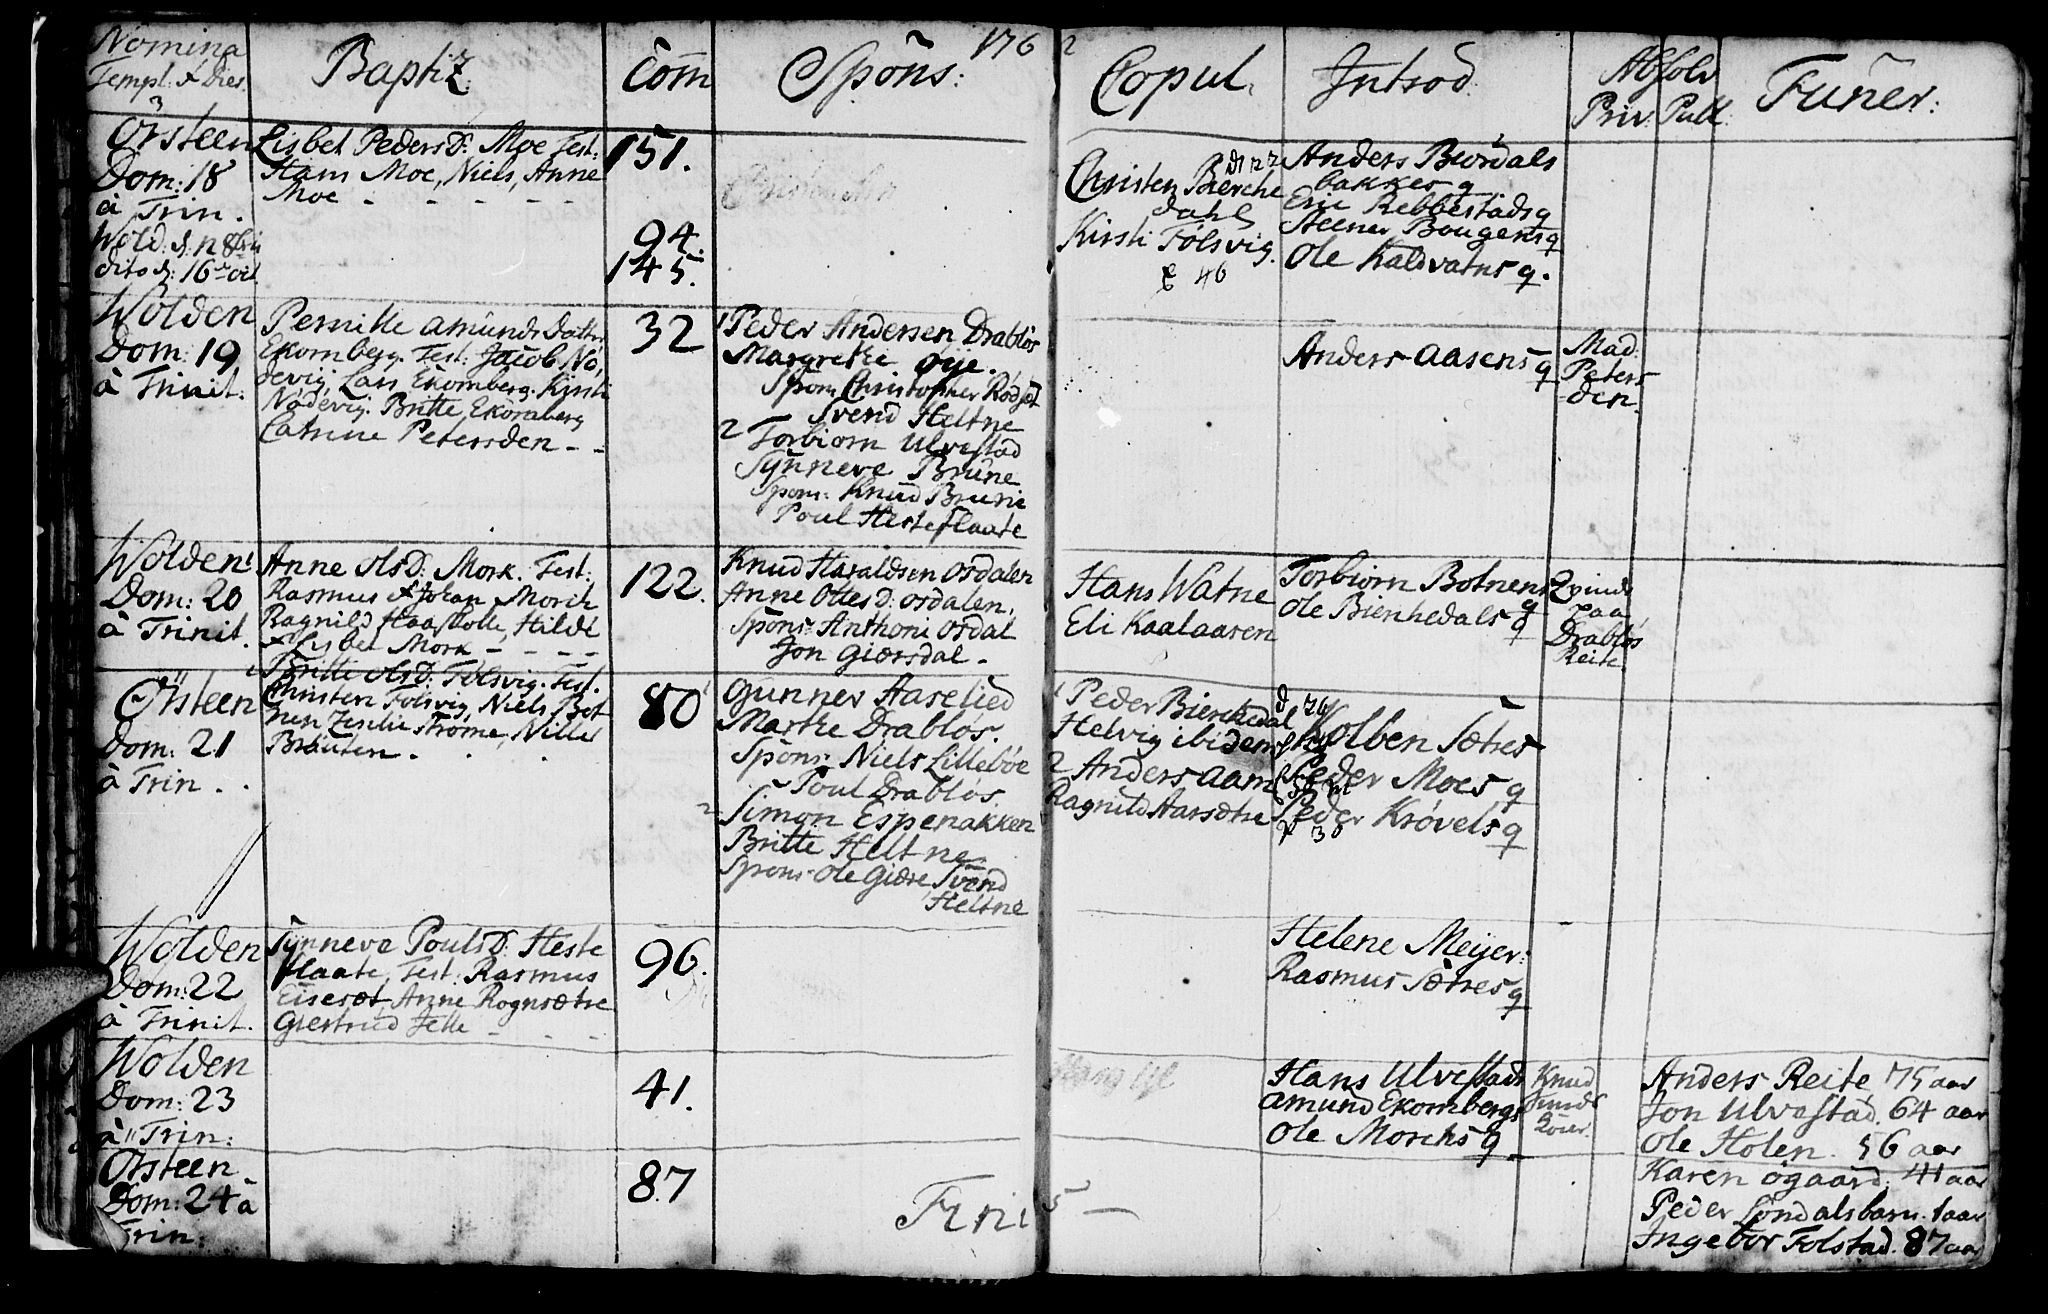 Nomina
Templ: & Dies
Baptiz:
Com̄
Spons:
176
2
Copul.
Introd:
Absolv
Priv: Publ:
Funer:
Örsteen
Dom: 18
à Trin.
Wold:
dito d: 16 oct
Lisbet PedersD: Moe Test:
Hans Moe, Niels, Anne
Moe - - - - -
151.
94.
145.
Christen Bierche
dahl
Kirsti Følsvig.
46
Anders Biørdals
bakkes q
Eric Rebbestads q
Steener Bougens q
Ole Kaldvatns q.
Wolden
Dom: 19
à Trinit:
Pernille Amunds Datter
Ekornberg. Test: Jacob Nö,
devig, Lars Ekornberg. Kirsti
Nödevig. Britte Ekornberg
Catrine Petersden - -
32
1 Peder Andersen Drabløs
Margrethe Øye.
Spons Christopher Rødset
Svend Heltne
2 Torbiorn Ulvestad
Synneve Brune
Spons: Knud Brune
Poul Hesteflaate
Anders Aasens q
Mad:
Peters
den.
Wolden
Dom: 20
à Trinit.
Anne OlsD. Mork. Test:
Rasmus & Johan Morck
Ragnild Haaskolle, Hilde
& Lisbet Mork - - - -
122.
Knud Haraldsen Osdalen
Anne OttesD: Osdalen.
Spons: Anthoni Osdal
Jon Giærsdal -
Hans Watne
Eli Kaalaasen
Torbiorn Botnens q
Ole Bienhedals q
Qvinde
paa
Drabløs
Reite
Örsteen
Dom: 21
à Trin.
Britte OlsD. Følsvig. Test.
Christen Folsvig, Niels Bot
nen Zesilie Strøme, Nille
Brauten.
80
1 Gunner Aaselied
Marthe Drabløs.
Spons: Niels Lillebøe
Poul Drabløs.
2 Simon Espenakken
Britte Heltne
Spons: Ole Giære, Svend
Heltne
1 Peder Bierchedal
Helvig ibidem
2 Anders Aam
Ragnild Aarsætre
Kolben Sætres
Peder Moes q
Peder Krøvels q
30
Wolden
Dom: 22
à Trinit.
Synneve PoulsD: Heste
flaate, Test: Rasmus
Eiseset Anne Rognsætre
Giertrud Jelle - - -
96.
Helene Meijer:
Rasmus Sætres q
Wolden
Dom: 23
à Trin:
41.
Hans Ulvestads
Amund Ekornbergs
Ole Morcks q
Knud
Anders Reite 75 aar
Jon Ulvestad. 64 aar
Ole Holen. 56 aar
Örsteen
Dom: 24 à
Trin:
87
Finis
Karen Øgaard. 41 aar
Peder Søndals barn. 1 aar
Ingebor Folstad. 87 aar